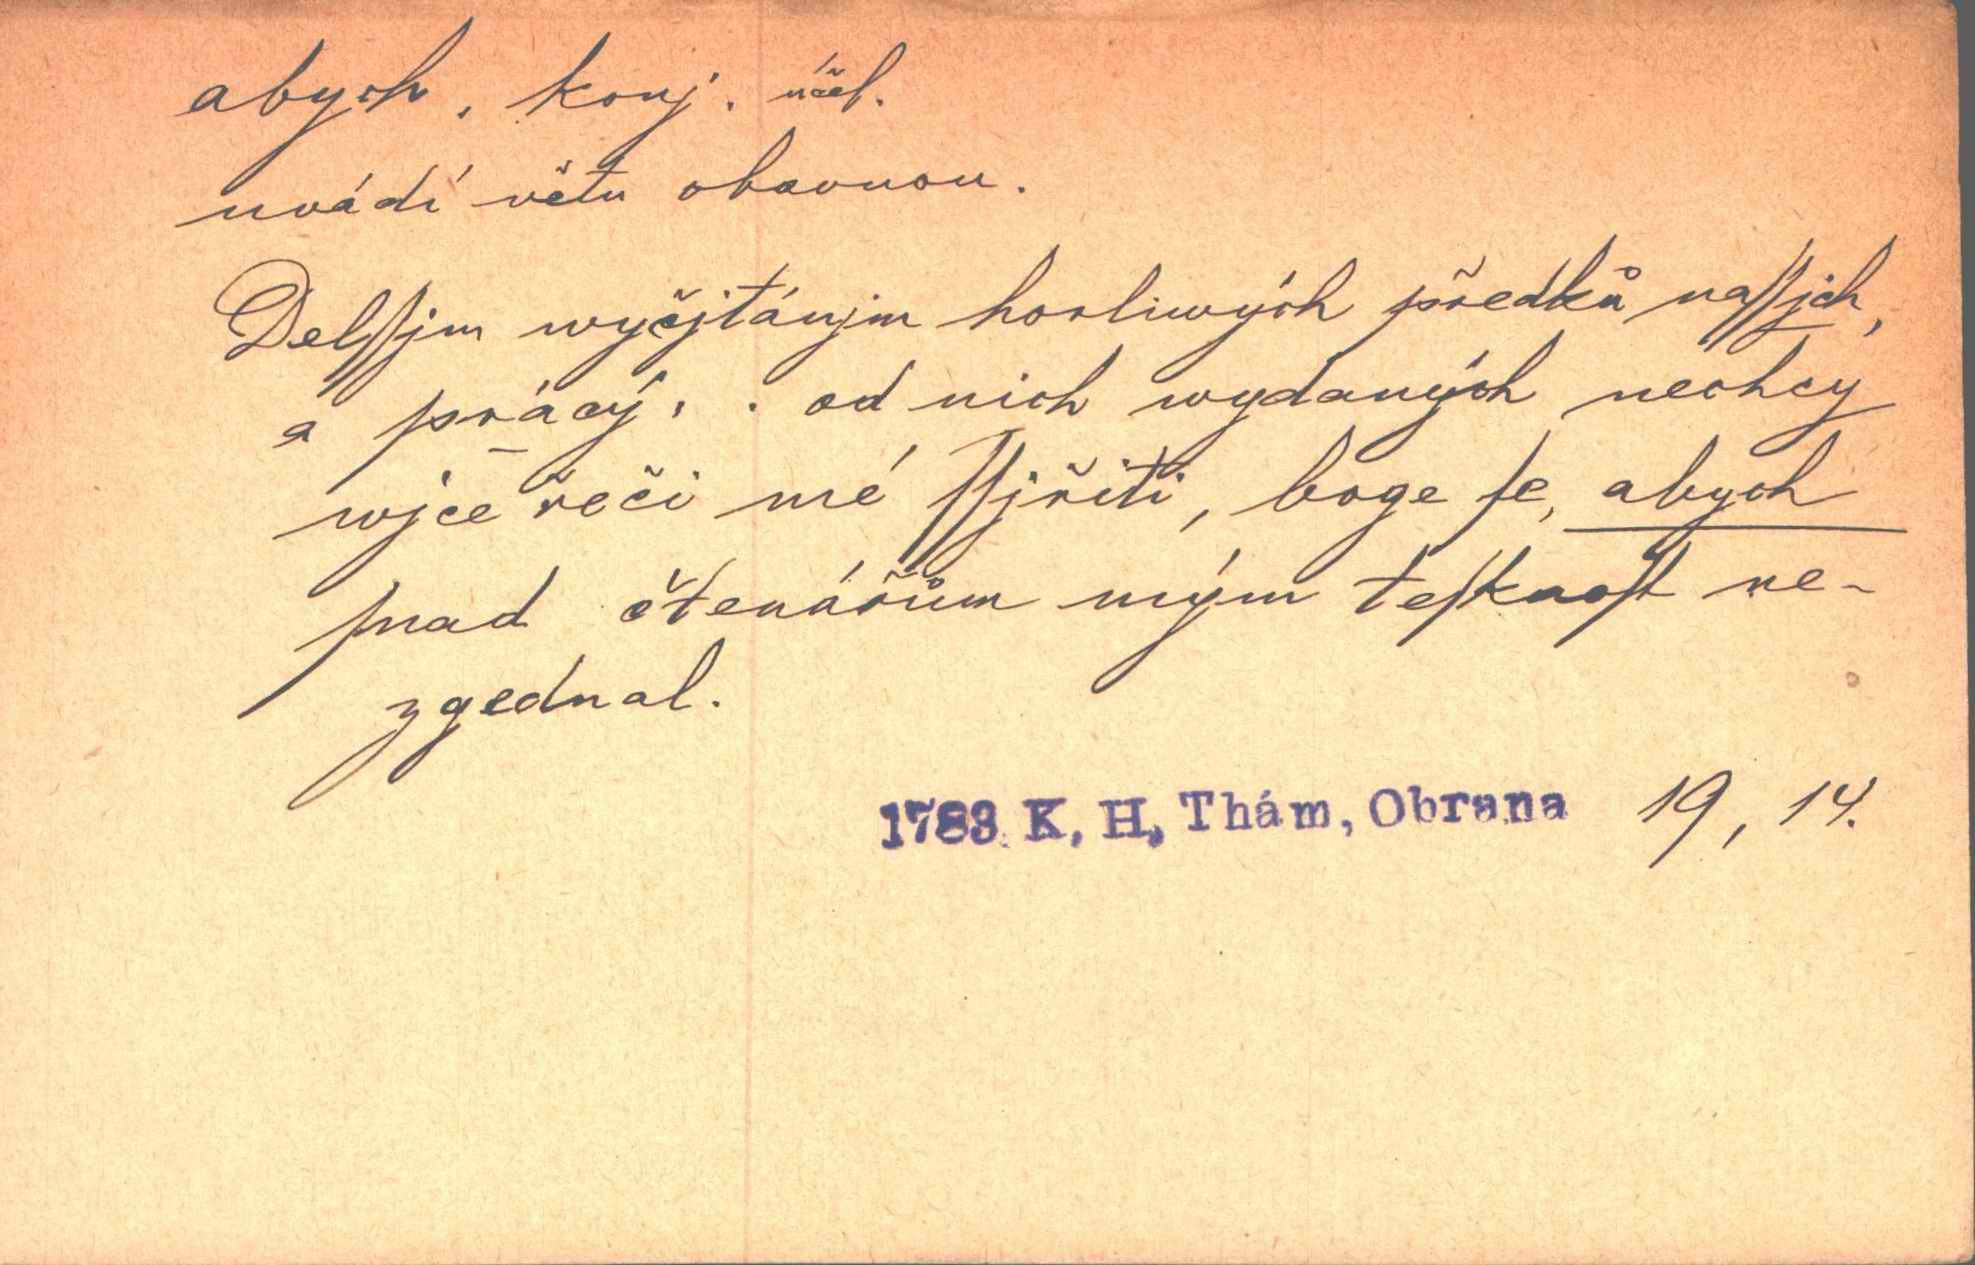 abych, konj. účel.
uvádí větu obavnou.
Delſſjm wyčjtánjm horliwých předků naſſjch,
a prácý . . od nich wydaných nechcy
wjce řeči mé ſſjřiti, boge ſe, abych
ſnad čtenářům mým teſknoſt ne-
zgednal.
1783 K. H. Thám, Obrana 19, 14.